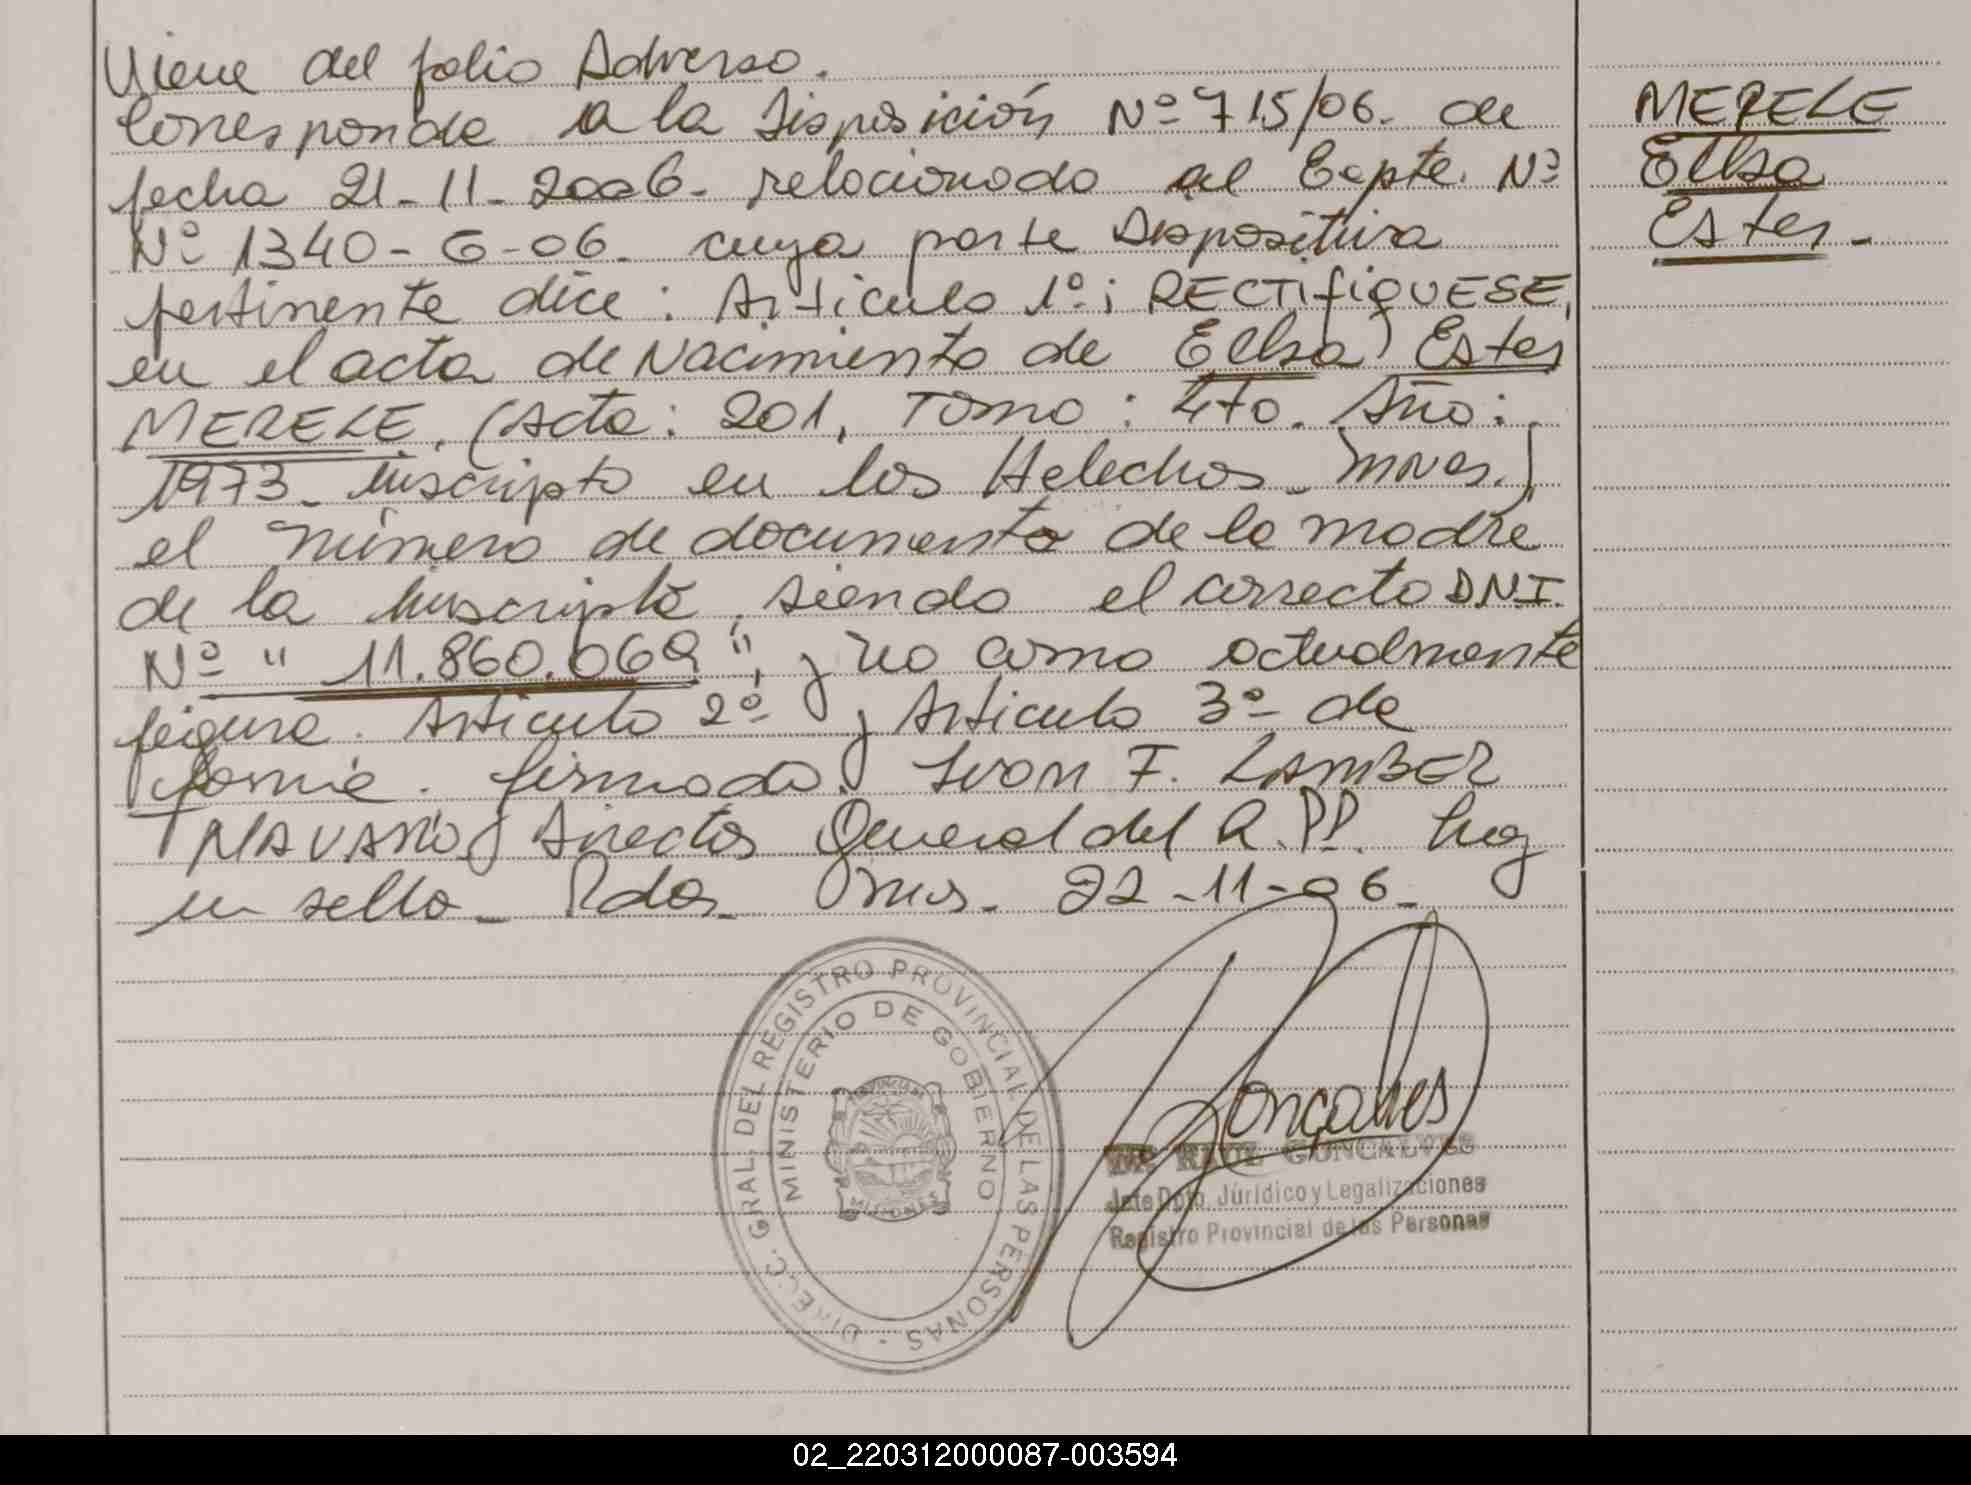 Viene del folio Adverso.
Corresponde a la Disposición Nº 715/06. de
fecha 21-11-2006. relacionado al Expte. Nº
Nº 1340-G-06. cuya parte Dispositiva
pertinente dice: Artículo 1º; RECTIFIQUESE,
en el acta de Nacimiento de Elba Ester
MERELE. (Acta: 201, Tomo: 4to. Año:
1973. Inscripto en los Helechos. Mnes.)
el número de documento de la madre
de la Inscripta, siendo el correcto D.N.I.
Nº " 11.860.069 ", y no como actualmente
figura. Artículo 2º y Artículo 3º de
forma. firmado. Ivon F. LAMBER
NAVARRO Director General del R.PP. hay
un sello. Pdas. Mnes. 22-11-06.
MERELE
Elba
Ester.
DIREC. GRAL. DEL REGISTRO PROVINCIAL DE LAS PERSONAS
MINISTERIO DE GOBIERNO
MISIONES
Gonçalves
Dr. RAUL GONCALVES
Jefe Dpto. Jurídico y Legalizaciones
Registro Provincial de las Personas
02_220312000087-003594